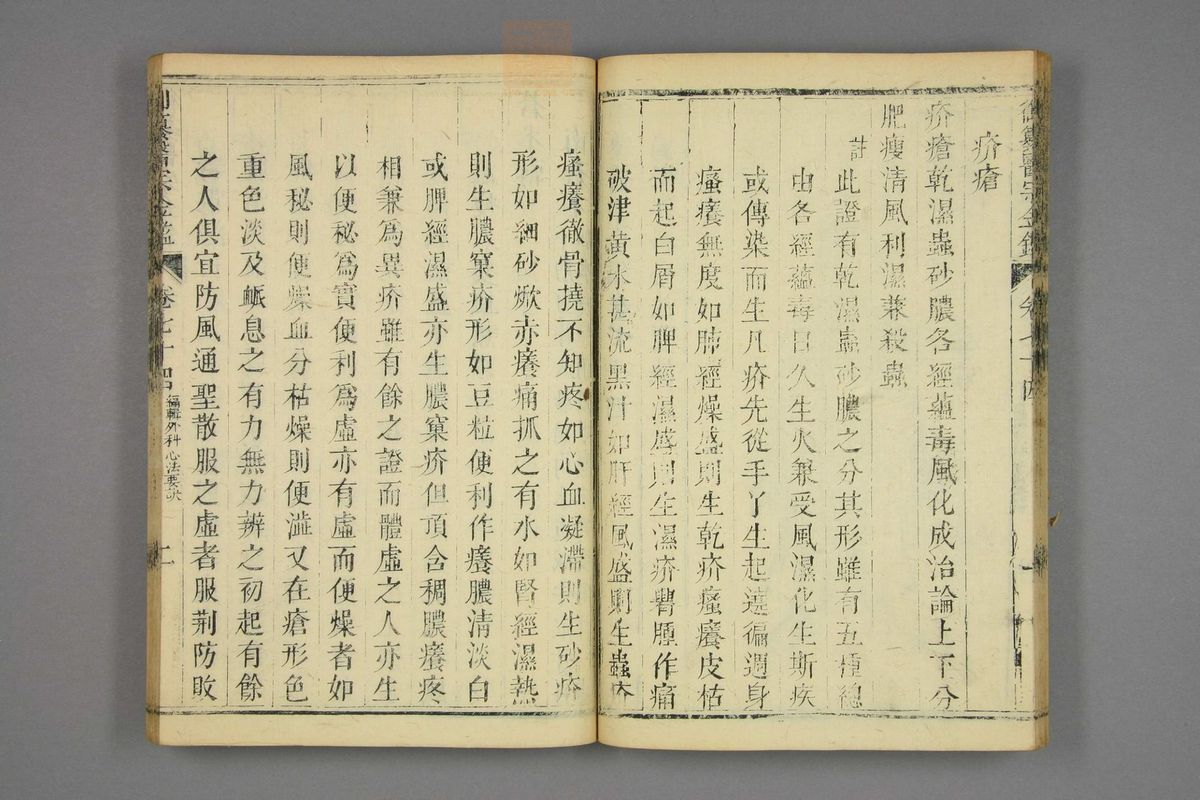 御纂醫宗金鑑 卷七十四 一
疥瘡
疥瘡乾濕蟲砂膿各經蘊毒風化成治論上下分
肥瘦清風利濕兼殺蟲
註 此證有乾濕蟲砂膿之分其形雖有五種總
由各經蘊毒日久生火兼受風濕化生斯疾
或傳染而生凡疥先從手丫生起遶徧週身
瘙癢無度如肺經燥盛則生乾疥瘙癢皮枯
而起白屑如脾經濕盛則生濕疥腫作痛
破津黃水甚流黑汁如肝經風盛則生蟲疥
瘙癢徹骨撓不知疼如心血凝滯則生砂疥
形如細砂焮赤癢痛抓之有水如腎經濕熱
則生膿窠疥形如豆粒便利作癢膿清淡白
或脾經濕盛亦生膿窠疥但頂含稠膿癢疼
相兼爲異疥雖有餘之證而體虛之人亦生
以便秘爲實便利爲虛亦有虛而便燥者如
風秘則便燥血分枯燥則便澁又在瘡形色
重色淡及䘐息之有力無力辨之初起有餘
之人俱宜防風通聖散服之虛者服荆防敗
御纂醫宗金鑑 卷七十四 編輯外科心法要訣